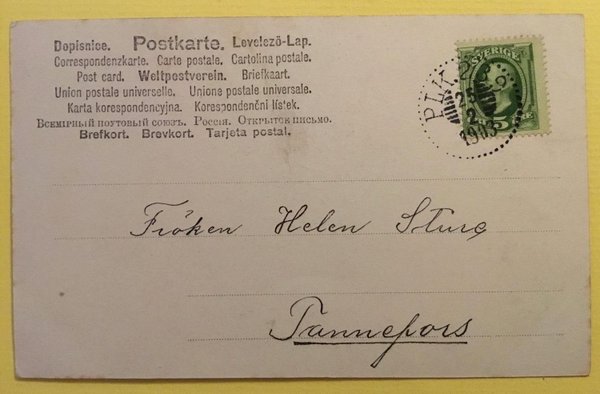 Dopisnice. Postkarte. Levelező-Lap.
Correspondenzkarte. Carte postale. Cartolina postale.
Post card. Weltpostverein. Briefkaart.
Union postale universelle. Unione postale universale.
Karta korespondencyjna. Korespondenční lístek.
Всемірный почтовый союзъ. Россія. Открытое письмо.
Brefkort. Brevkort. Tarjeta postal.
SVERIGE
25
2
1903
Fröken Helen Sture
Tannefors